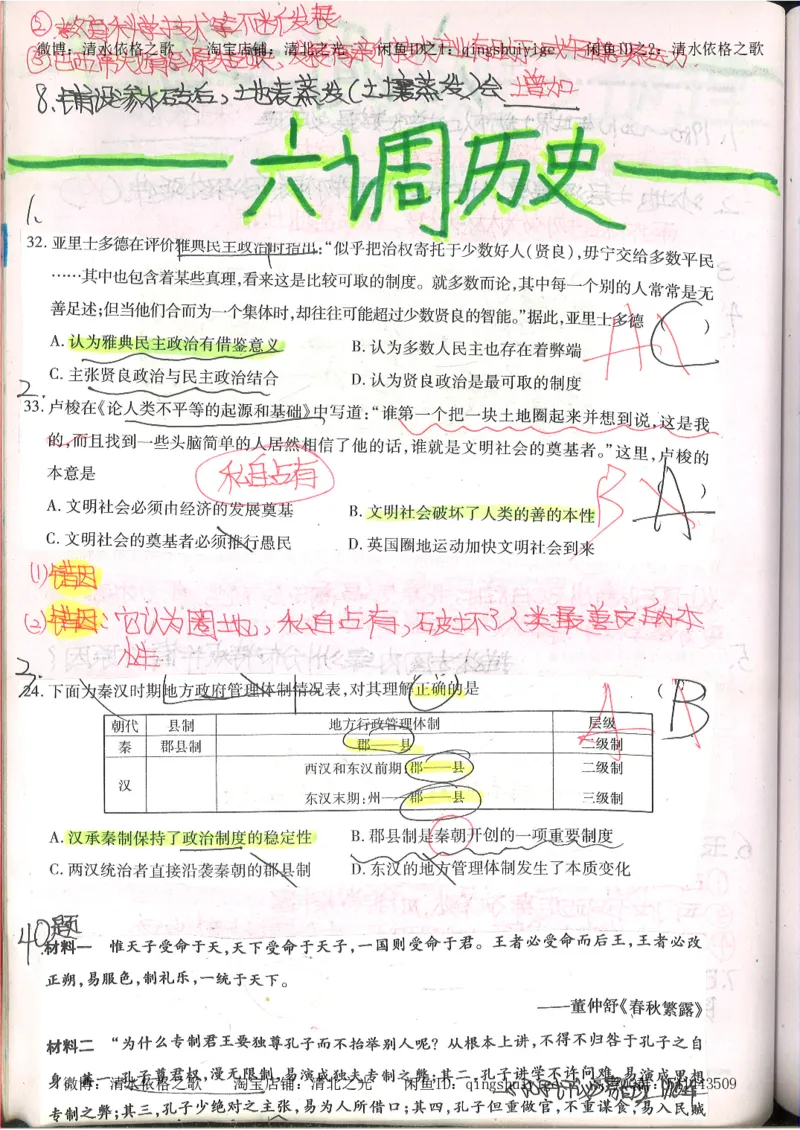 ② 教育科学技术等不断发展
微博：清水依格之歌 淘宝店铺：清北之光 闲鱼ID之1：qingshuiyige 闲鱼ID之2：清水依格之歌
8.铺设渗水砖后，地表蒸发(土壤蒸发)会 增加
六调历史
1.
32. 亚里士多德在评价雅典民主政治时指出：“似乎把治权寄托于少数好人(贤良)，毋宁交给多数平民
……其中也包含着某些真理，看来这是比较可取的制度。就多数而论，其中每一个别的人常常是无
善足述；但当他们合而为一个集体时，却往往可能超过少数贤良的智能。”据此，亚里士多德 ( )
A C
A. 认为雅典民主政治有借鉴意义 B. 认为多数人民主也存在着弊端
C. 主张贤良政治与民主政治结合 D. 认为贤良政治是最可取的制度
2.
33. 卢梭在《论人类不平等的起源和基础》中写道：“谁第一个把一块土地圈起来并想到说，这是我
的，而且找到一些头脑简单的人居然相信了他的话，谁就是文明社会的奠基者。”这里，卢梭的
本意是 ( )
私自占有
B A
A. 文明社会必须由经济的发展奠基 B. 文明社会破坏了人类的善的本性
C. 文明社会的奠基者必须推行愚民 D. 英国圈地运动加快文明社会到来
(1) 错因
(2) 错因：它认为圈地，私自占有，破坏了人类最善良的本
性
3.
24. 下面为秦汉时期地方政府管理体制情况表，对其理解正确的是 ( )
A B
朝代 县制 地方行政管理体制 层级
秦 郡县制 郡——县 二级制
汉 西汉和东汉前期：郡——县 二级制
东汉末期：州——郡——县 三级制
A. 汉承秦制保持了政治制度的稳定性 B. 郡县制是秦朝开创的一项重要制度
C. 两汉统治者直接沿袭秦朝的郡县制 D. 东汉的地方管理体制发生了本质变化
40题
材料一 惟天子受命于天，天下受命于天子，一国则受命于君。王者必受命而后王，王者必改
正朔，易服色，制礼乐，一统于天下。
——董仲舒《春秋繁露》
材料二 “为什么专制君王要独尊孔子而不抬举别人呢？从根本上讲，不得不归咎于孔子之自
身。其一，孔子尊君权，漫无限制，易演成独夫专制之弊；其二，孔子讲学不许问难，易演成思想
微博：清水依格之歌 淘宝店铺：清北之光 闲鱼ID：qingshuiyige
专制之弊；其三，孔子少绝对之主张，易为人所借口；其四，孔子但重做官，不重谋食，易入民贼